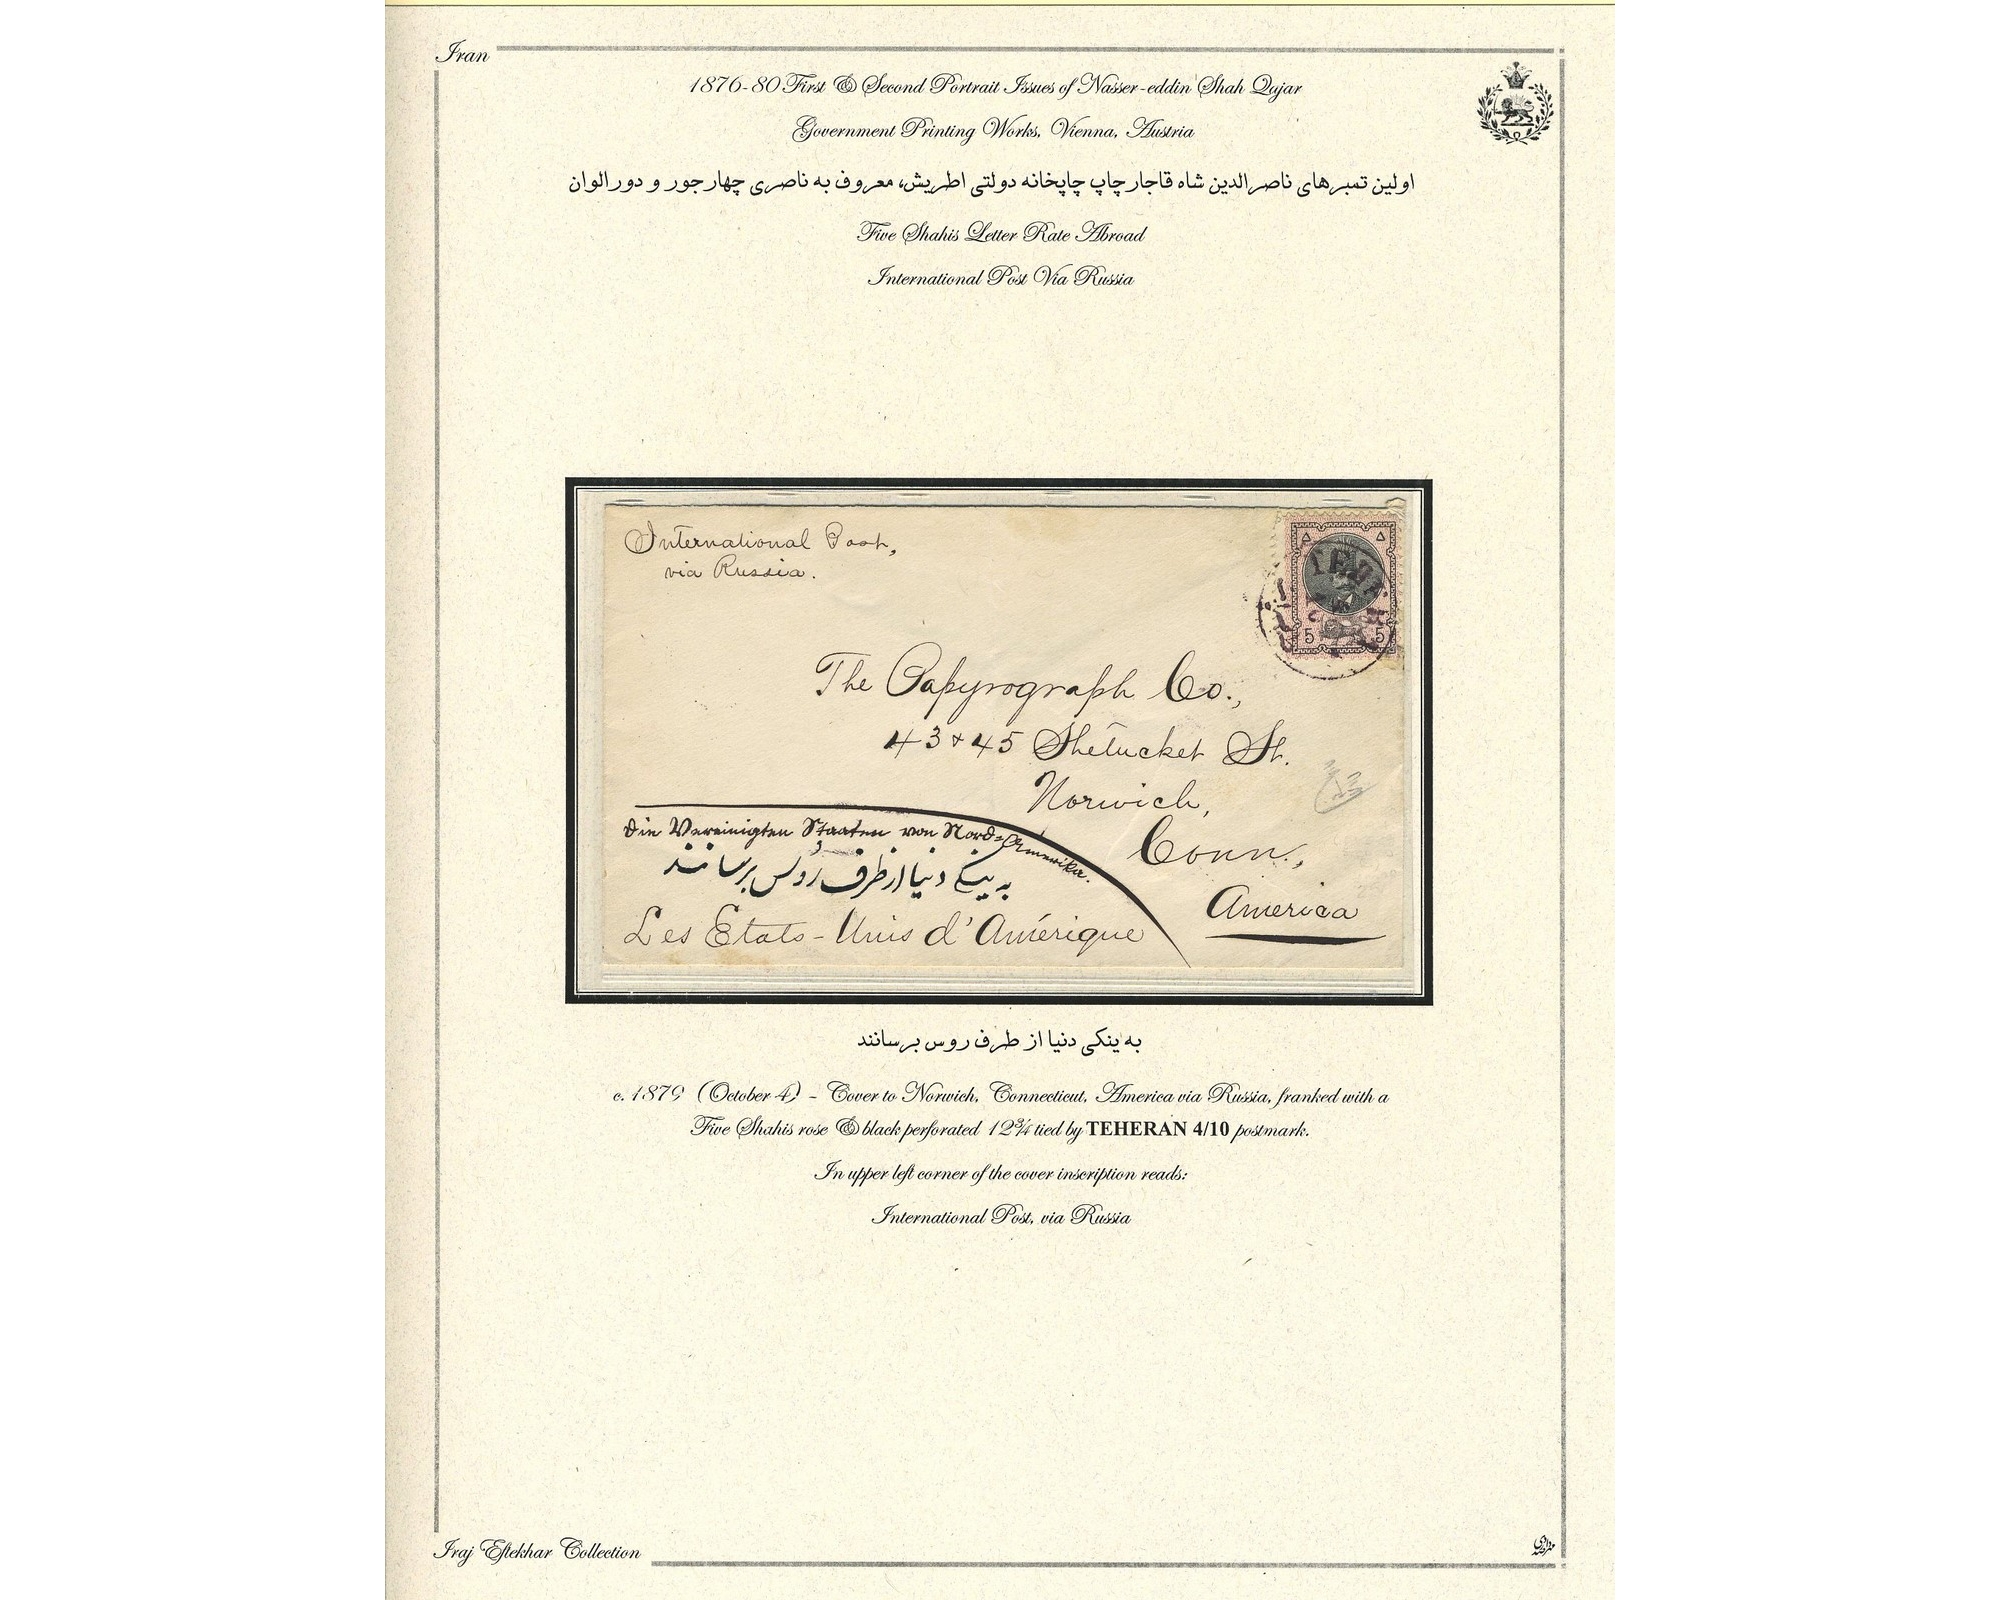 Iran
1876-80 First & Second Portrait Issues of Nasser-eddin Shah Qajar
Government Printing Works, Vienna, Austria
اولین تمبرهای ناصرالدین شاه قاجار چاپ چاپخانه دولتی اطریش، معروف به ناصری چهارجور و دورالوان
Five Shahis Letter Rate Abroad
International Post Via Russia
International Post,
via Russia.
TEHER
5 5
The Papyrograph Co.,
43 & 45 Shetucket St.
Norwich,
Conn.,
America
Die Vereinigten Staaten von Nord-Amerika.
به ینکی دنیا از طرف روس برسانند
Les Etats-Unis d'Amérique
به ینکی دنیا از طرف روس برسانند
c. 1879 (October 4) - Cover to Norwich, Connecticut, America via Russia, franked with a
Five Shahis rose & black perforated 12¾ tied by TEHERAN 4/10 postmark.
In upper left corner of the cover inscription reads:
International Post, via Russia
Iraj Eftekhar Collection